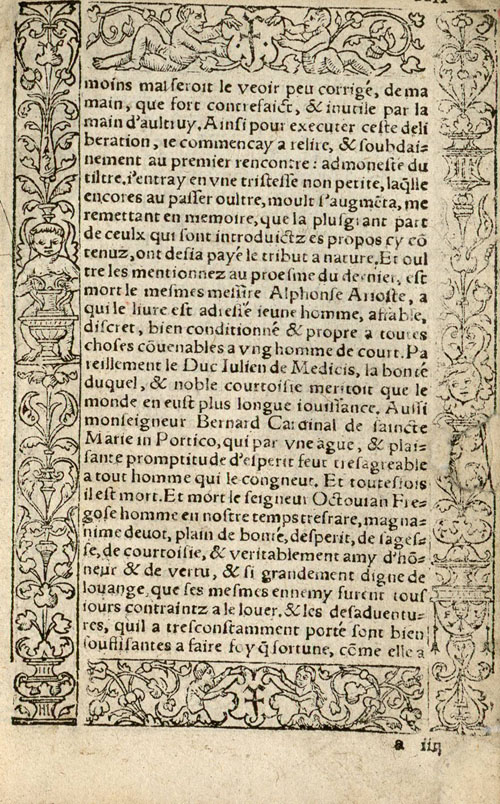 moins mal seroit le veoir peu corrigé, de ma
main, que fort contrefaict, & inutile par la
main d'aultruy. Ainsi pour executer ceste deli
beration, ie commencay a relire, & soubdai⸗
nement au premier rencontre: admoneste du
tiltre, i'entray en vne tristesse non petite, laq̃lle
encores au passer oultre, moult s'augmẽta, me
remettant en memoire, que la plusgrant part
de ceulx qui sont introduictz es propos cy cõ
tenuz, ont desia payé le tribut a nature. Et oul
tre les mentionnez au proesme du dernier, est
mort le mesmes messire Alphonse Arioste, a
qui le liure est adressé ieune homme, afiable,
discret, bien conditionné & propre a toutes
choses cõuenables a vng homme de court. Pa
reillement le Duc Iulien de Medicis, la bonté
duquel, & noble courtoisie meritoit que le
monde en eust plus longue iouissance. Aussi
monseigneur Bernard Cardinal de saincte
Marie in Portico, qui par vne ague, & plai⸗
sante promptitude d'esperit feut tresagreable
a tout homme qui le congneut. Et toutesfois
il est mort. Et mort le seigneur Octouian Fre⸗
gose homme en nostre temps tresrare, magna⸗
nime deuot, plain de bonté, desperit, de sages⸗
se, de courtoisie, & veritablement amy d'hõ⸗
neur & de vertu, & si grandement digne de
louange que ses mesmes ennemy furent tous
iours contraintz a le louer. & les desaduentu⸗
res, quil a tresconstamment porté sont bien
souffisantes a faire foy q̃ fortune, cõme elle a
a iiij